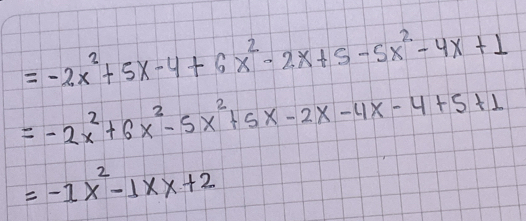 = -2x² + 5x - 4 + 6x² - 2x + 5 - 5x² - 4x + 1
= -2x² + 6x² - 5x² + 5x - 2x - 4x - 4 + 5 + 1
= -1x² - 1xx + 2